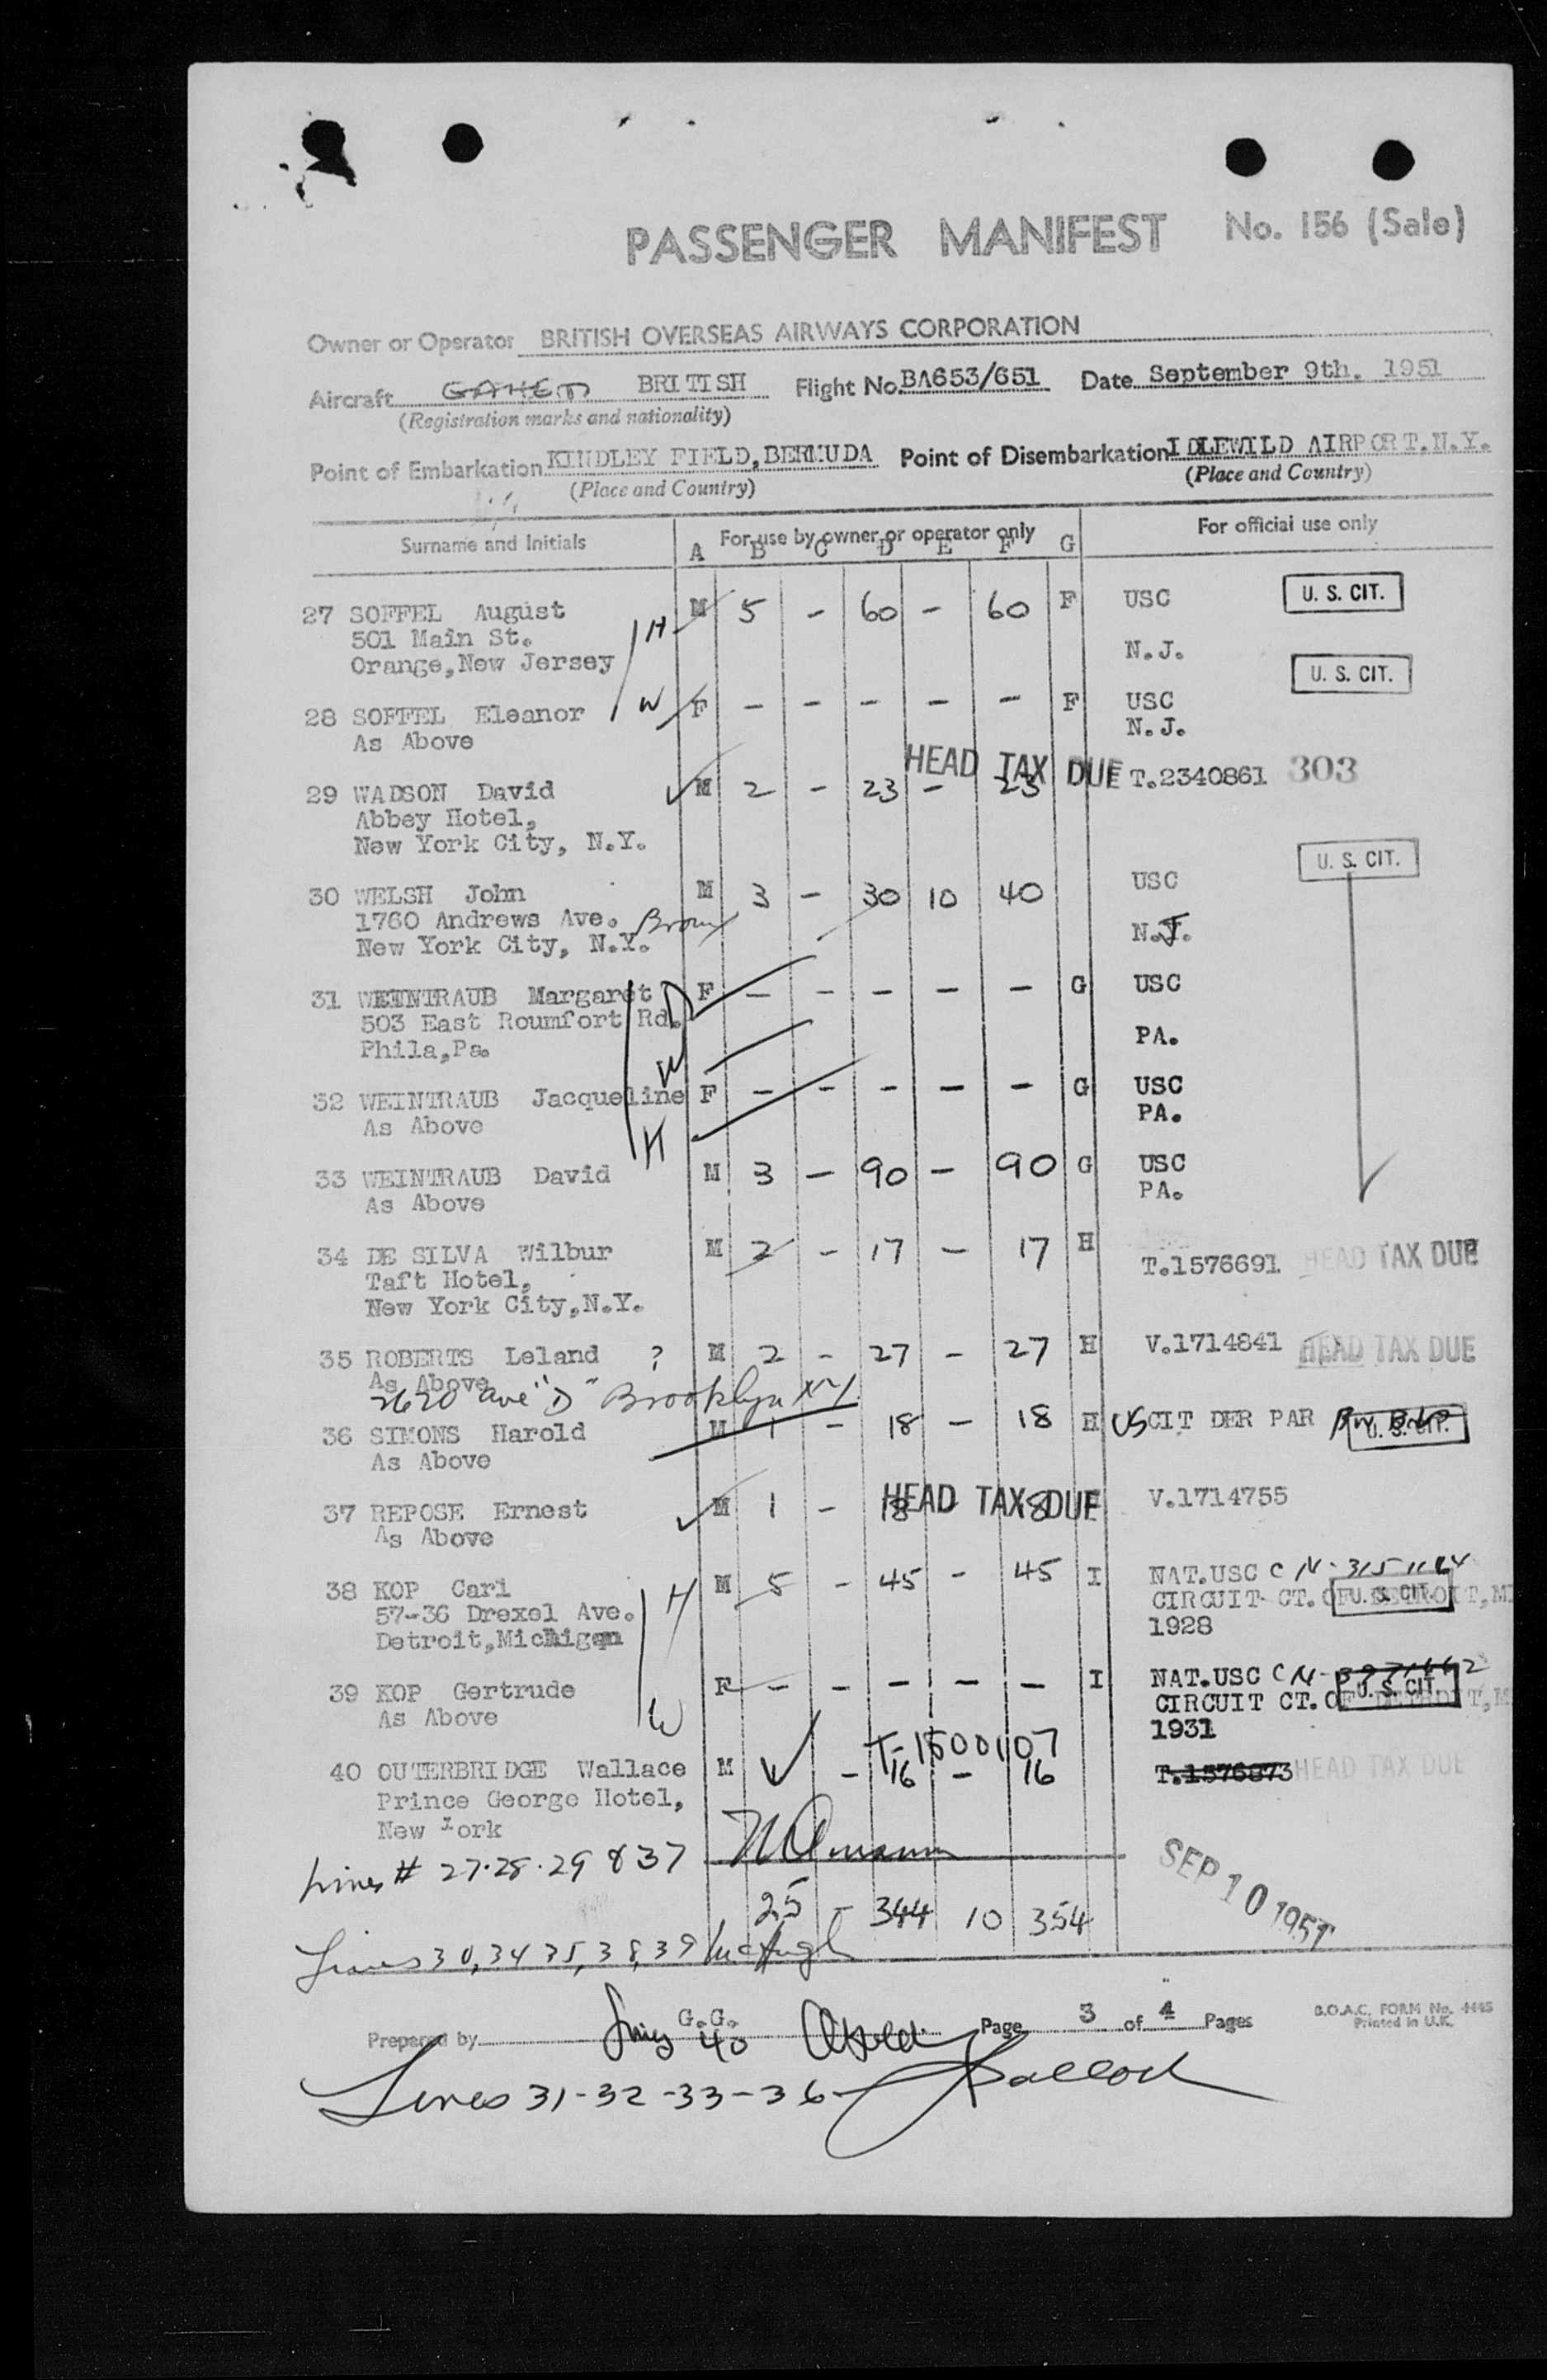 PASSENGER MANIFEST No. 156 (Sale)
Owner or Operator BRITISH OVERSEAS AIRWAYS CORPORATION
Aircraft BRITISH Flight No. BA653/651 Date September 9th. 1951
(Registration marks and nationality)
Point of Embarkation KINDLEY FIELD, BERMUDA Point of Disembarkation IDLEWILD AIRPORT.N.Y.
(Place and Country) (Place and Country)
Surname and Initials For use by owner or operator only For official use only
A B C D E F G
27 SOFFEL August H M 5 - 60 - 60 F USC U. S. CIT.
501 Main St.
Orange, New Jersey N.J.
U. S. CIT.
28 SOFFEL Eleanor W F - - - - - F USC
As Above N.J.
HEAD TAX DUE
29 WADSON David M 2 - 23 - 23 T.2340861 303
Abbey Hotel,
New York City, N.Y.
U. S. CIT.
30 WELSH John M 3 - 30 10 40 USC
1760 Andrews Ave. Bronx
New York City, N.Y. N.J.
31 WEINTRAUB Margaret D F - - - - - G USC
503 East Roumfort Rd.
Phila,Pa. PA.
W
32 WEINTRAUB Jacqueline F - - - - - G USC
As Above PA.
H
33 WEINTRAUB David M 3 - 90 - 90 G USC
As Above PA.
34 DE SILVA Wilbur M 2 - 17 - 17 H T.1576691 HEAD TAX DUE
Taft Hotel,
New York City,N.Y.
35 ROBERTS Leland ? M 2 - 27 - 27 H V.1714841 HEAD TAX DUE
As Above
2620 Ave "D" Brooklyn NY
36 SIMONS Harold M 1 - 18 - 18 H US CIT DER PAR U. S. CIT.
As Above
37 REPOSE Ernest M 1 - 18 - 18 HEAD TAX DUE V.1714755
As Above
38 KOP Carl H M 5 - 45 - 45 I NAT.USC C N-
57-36 Drexel Ave. CIRCUIT CT. OF DETROIT, MI U. S. CIT.
Detroit,Michigan 1928
39 KOP Gertrude F - - - - - I NAT.USC C N-
As Above W CIRCUIT CT. OF DETROIT, MI U. S. CIT.
1931
T-1500107
40 OUTERBRIDGE Wallace M - 16 - 16 T.1576873 HEAD TAX DUE
Prince George Hotel,
New York
Lines # 27-28-29 & 37
SEP 10 1951
25 - 344 10 354
Lines 30,34 35,38,39 McHugh
Prepared by G.G. Page 3 of 4 Pages B.O.A.C. FORM No. 4445
Printed in U.K.
Lines 40
Lines 31-32-33-36